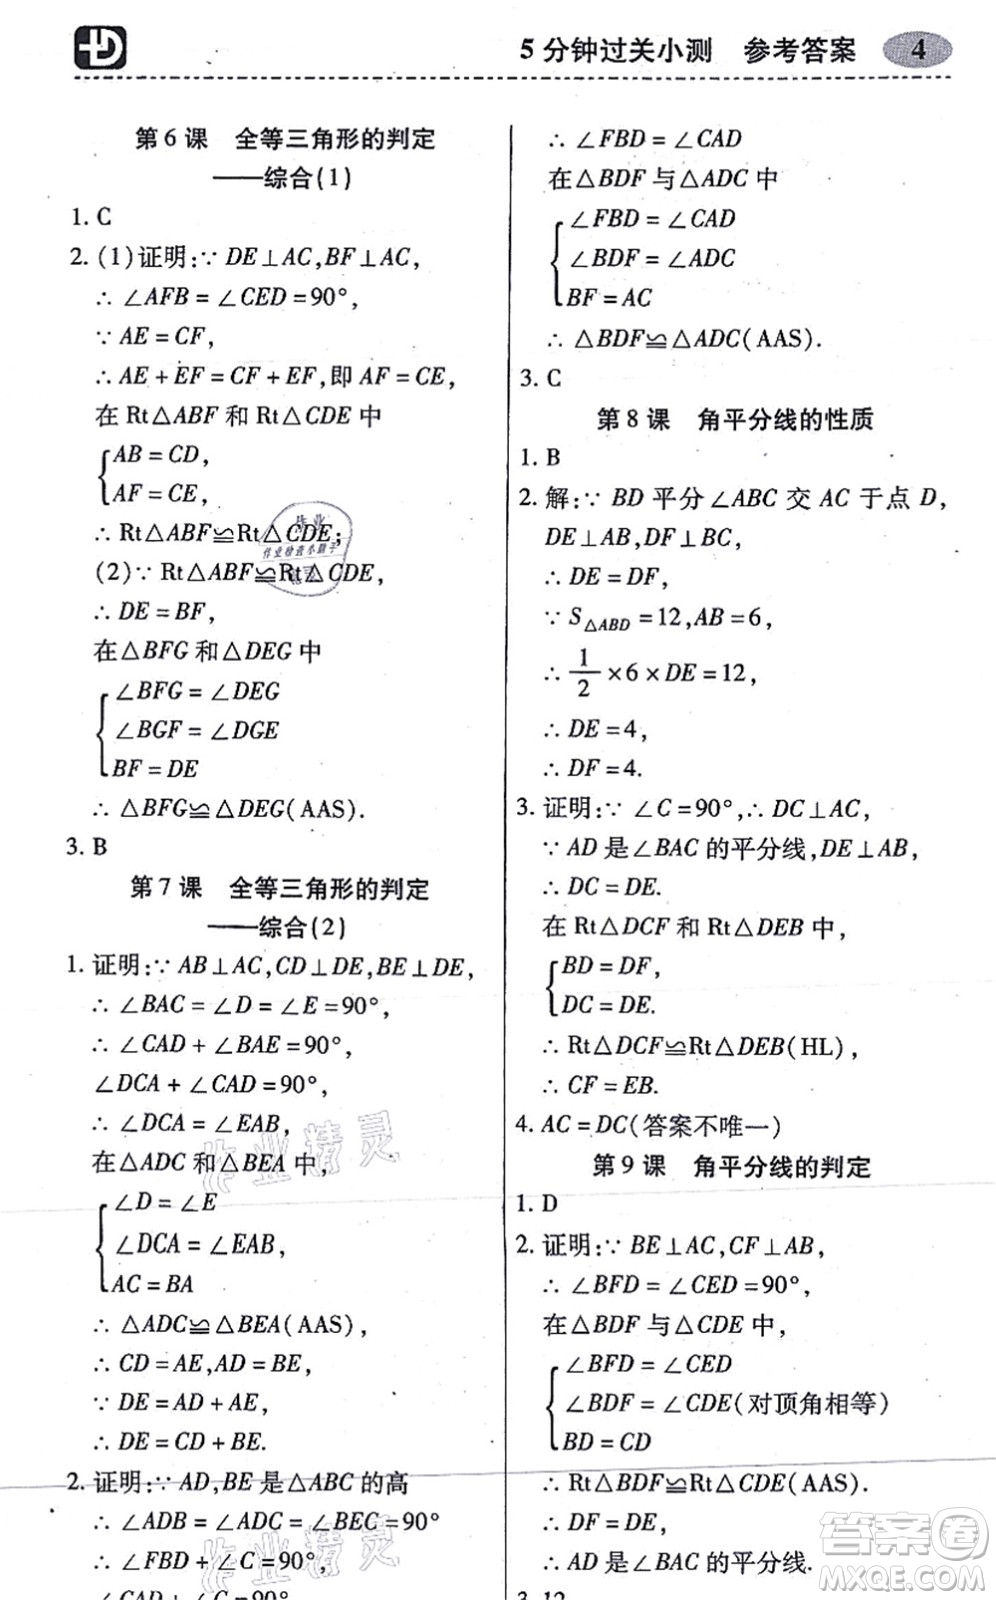 5分钟过关小测 参考答案 4
第6课 全等三角形的判定
——综合(1)
1. C
2. (1)证明:∵DE⊥AC,BF⊥AC,
∴∠AFB=∠CED=90°,
∵AE=CF,
∴AE+EF=CF+EF,即AF=CE,
在Rt△ABF和Rt△CDE中
AB=CD,
AF=CE,
∴Rt△ABF≌Rt△CDE;
(2)∵Rt△ABF≌Rt△CDE,
∴DE=BF,
在△BFG和△DEG中
∠BFG=∠DEG
∠BGF=∠DGE
BF=DE
∴△BFG≌△DEG(AAS).
3. B
第7课 全等三角形的判定
——综合(2)
1. 证明:∵AB⊥AC,CD⊥DE,BE⊥DE,
∴∠BAC=∠D=∠E=90°,
∴∠CAD+∠BAE=90°,
∠DCA+∠CAD=90°,
∴∠DCA=∠EAB,
在△ADC和△BEA中
∠D=∠E
∠DCA=∠EAB,
AC=BA
∴△ADC≌△BEA(AAS),
∴CD=AE,AD=BE,
∵DE=AD+AE,
∴DE=CD+BE.
2. 证明:∵AD,BE是△ABC的高
∴∠ADB=∠ADC=∠BEC=90°
∴∠FBD+∠C=90°,
∠CAD+∠C=90°,
∴∠FBD=∠CAD
在△BDF与△ADC中
∠FBD=∠CAD
∠BDF=∠ADC
BF=AC
∴△BDF≌△ADC(AAS).
3. C
第8课 角平分线的性质
1. B
2. 解:∵BD平分∠ABC交AC于点D,
DE⊥AB,DF⊥BC,
∴DE=DF,
∵S△ABD=12,AB=6,
∴1/2×6×DE=12,
∴DE=4,
∴DF=4.
3. 证明:∵∠C=90°,∴DC⊥AC,
∵AD是∠BAC的平分线,DE⊥AB,
∴DC=DE.
在Rt△DCF和Rt△DEB中,
BD=DF,
DC=DE.
∴Rt△DCF≌Rt△DEB(HL),
∴CF=EB.
4. AC=DC(答案不唯一)
第9课 角平分线的判定
1. D
2. 证明:∵BE⊥AC,CF⊥AB,
∴∠BFD=∠CED=90°,
在△BDF与△CDE中,
∠BFD=∠CED
∠BDF=∠CDE(对顶角相等)
BD=CD
∴Rt△BDF≌Rt△CDE(AAS).
∴DF=DE,
∴AD是∠BAC的平分线.
3. 12
作业精灵
作业精灵
答案圈
MXQE.COM